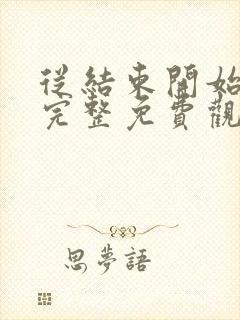 從結束開始
完整免費觀
思夢語